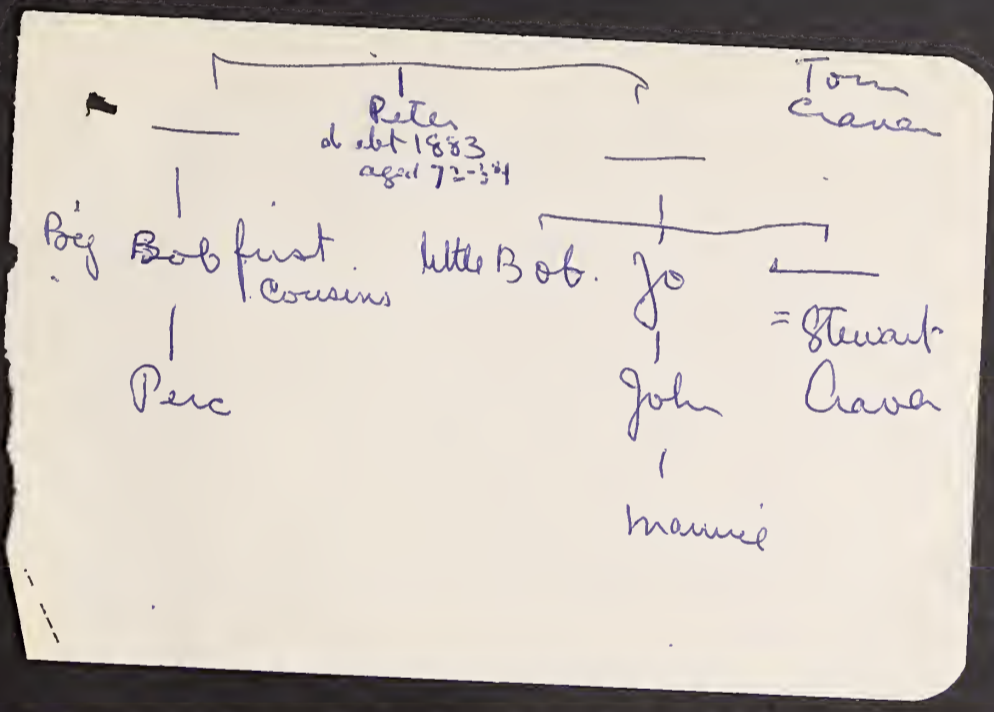 Tom
Craven
Peter
d abt 1883
aged 72-
Big Bob first cousins little Bob. Jo
= Stewart
Craven
Perc
John
Mannie